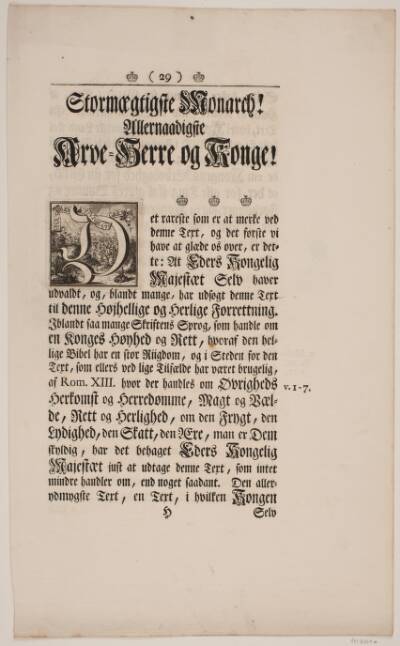 ( 29 )
Stormægtigste Monarch!
Allernaadigste
Arve-Herre og Konge!
Det rareste som er at merke ved
denne Text, og det første vi
have at glæde os over, er det-
te: At Eders Kongelig
Majestæt Selv haver
udvaldt, og, blandt mange, har udsøgt denne Text
til denne Høyhellige og Herlige Forrettning.
Iblandt saa mange Skriftens Sprog, som handle om
en Konges Høyhed og Rett, hvoraf den hel-
lige Bibel har en stor Riigdom, og i Steden for den
Text, som ellers ved lige Tilfælde har været brugelig,
af Rom. XIII. hvor der handles om Ovrigheds v. 1-7.
Herkomst og Herredømme, Magt og Væl-
de, Rett og Herlighed, om den Frygt, den
Lydighed, den Skatt, den Ære, man er Dem
skyldig, har det behaget Eders Kongelig
Majestæt just at udtage denne Text, som intet
mindre handler om, end noget saadant. Den aller-
ydmygste Text, en Text, i hvilken Kongen
H Selv